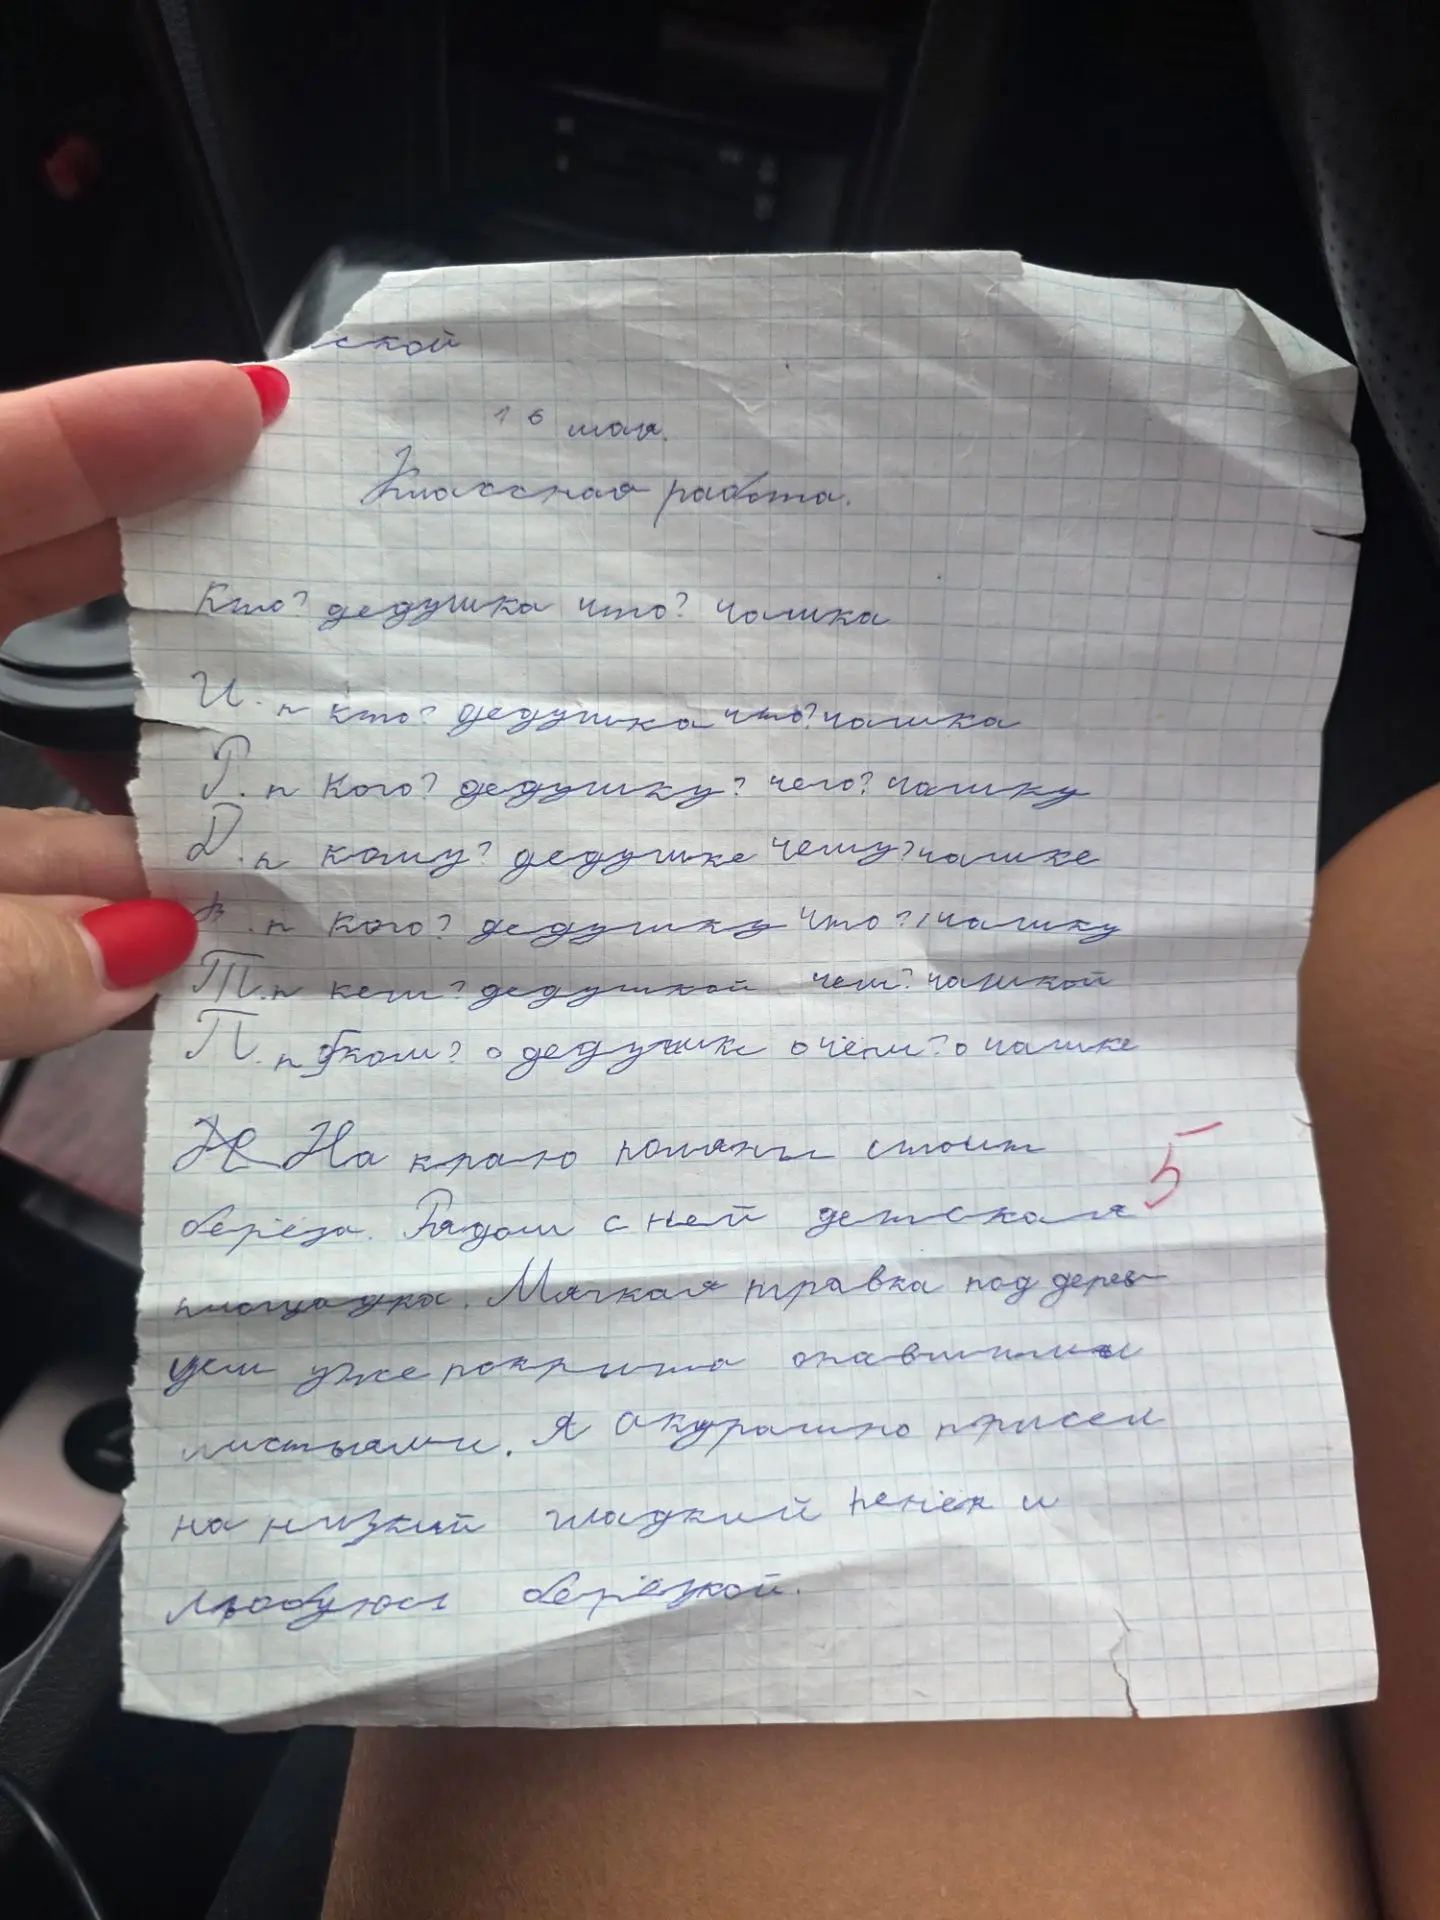 ской
16 мая.
Классная работа.
Кто? дедушка что? чашка
И.п кто? дедушка что? чашка
Р.п Кого? дедушку? чего? чашку
Д.п кому? дедушке чему? чашке
В.п Кого? дедушку что? чашку
Т.п кем? дедушкой чем? чашкой
П.п Оком? о дедушке о чём? о чашке
На краю поляны стоит
берёза. Рядом с ней детская
площадка. Мягкая травка под дерев-
цем уже покрыта опавшими
листьями. Я акуратно присел
на низкий гладкий пенёк и
любуюсь берёзкой.
5